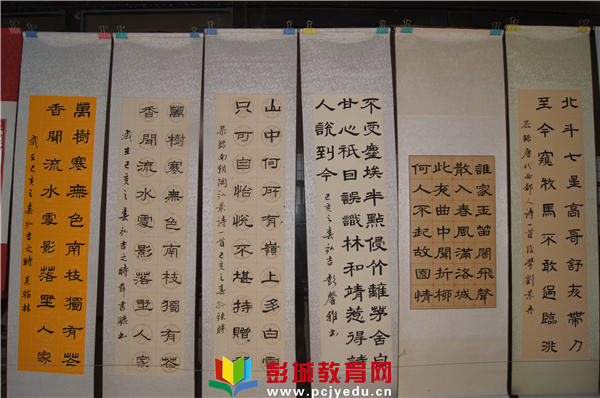 萬樹寒無色南枝獨有花
香聞流水處影落墅人家
萬樹寒無色南枝獨有花
香聞流水處影落墅人家
山中何所有嶺上多白雲
只可自怡悅不堪持贈
不受塵埃半點侵竹籬茅舍自
甘心祇因誤識林和靖惹得詩
人說到今
己亥之春弘古彭馨雅书
誰家玉笛闇飛聲
散入春風滿洛城
此夜曲中聞折柳
何人不起故園情
北斗七星高哥舒夜帶刀
至今窺牧馬不敢過臨洮
彭城教育网
www.pcjyedu.cn